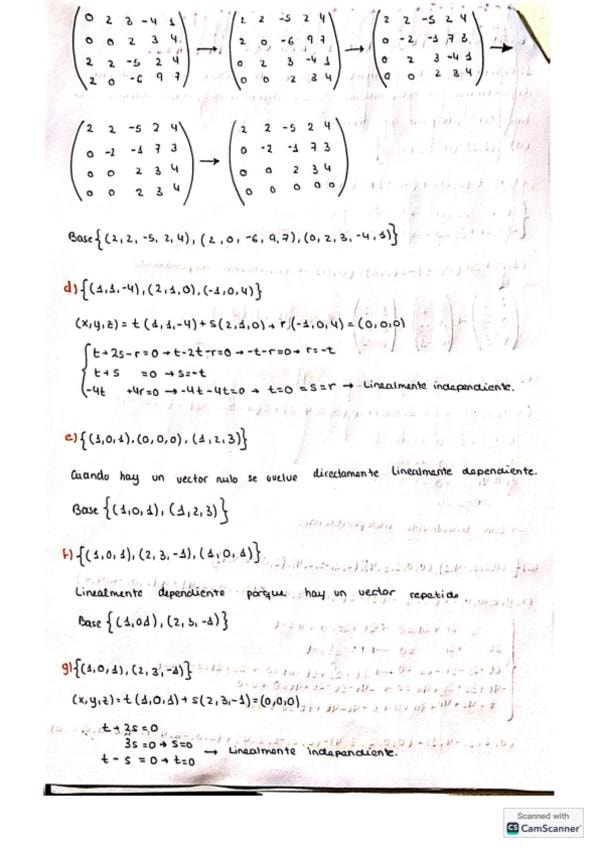 (0 2 3 -4 1) → (2 2 -5 2 4) → (2 2 -5 2 4) →
(0 0 2 3 4) (2 0 -6 9 7) (0 -2 -1 7 3)
(2 2 -5 2 4) (0 2 3 -4 1) (0 2 3 -4 1)
(2 0 -6 9 7) (0 0 2 3 4) (0 0 2 3 4)
(2 2 -5 2 4) → (2 2 -5 2 4)
(0 -2 -1 7 3) (0 -2 -1 7 3)
(0 0 2 3 4) (0 0 2 3 4)
(0 0 2 3 4) (0 0 0 0 0)
Base {(2, 2, -5, 2, 4), (2, 0, -6, 9, 7), (0, 2, 3, -4, 1)}
d) {(1,1,-4), (2,1,0), (-1,0,4)}
(x,y,z) = t (1,1,-4) + s(2,1,0) + r(-1,0,4) = (0,0,0)
t+2s-r=0 → t-2t-r=0 → -t-r=0 → r=-t
t+s =0 → s=-t
-4t +4r=0 → -4t-4t=0 → t=0 =s=r → Linealmente independiente.
e) {(1,0,1), (0,0,0), (1,2,3)}
Cuando hay un vector nulo se vuelve directamente linealmente dependiente.
Base {(1,0,1), (1,2,3)}
f) {(1,0,1), (2,3,-1), (1,0,1)}
Linealmente dependiente porque hay un vector repetido
Base {(1,01), (2,3,-1)}
g) {(1,0,1), (2,3,-1)}
(x,y,z) = t (1,0,1) + s(2,3,-1) = (0,0,0)
t+2s=0
3s=0 → s=0 → Linealmente independiente.
t-s =0 → t=0
Scanned with
CS CamScanner